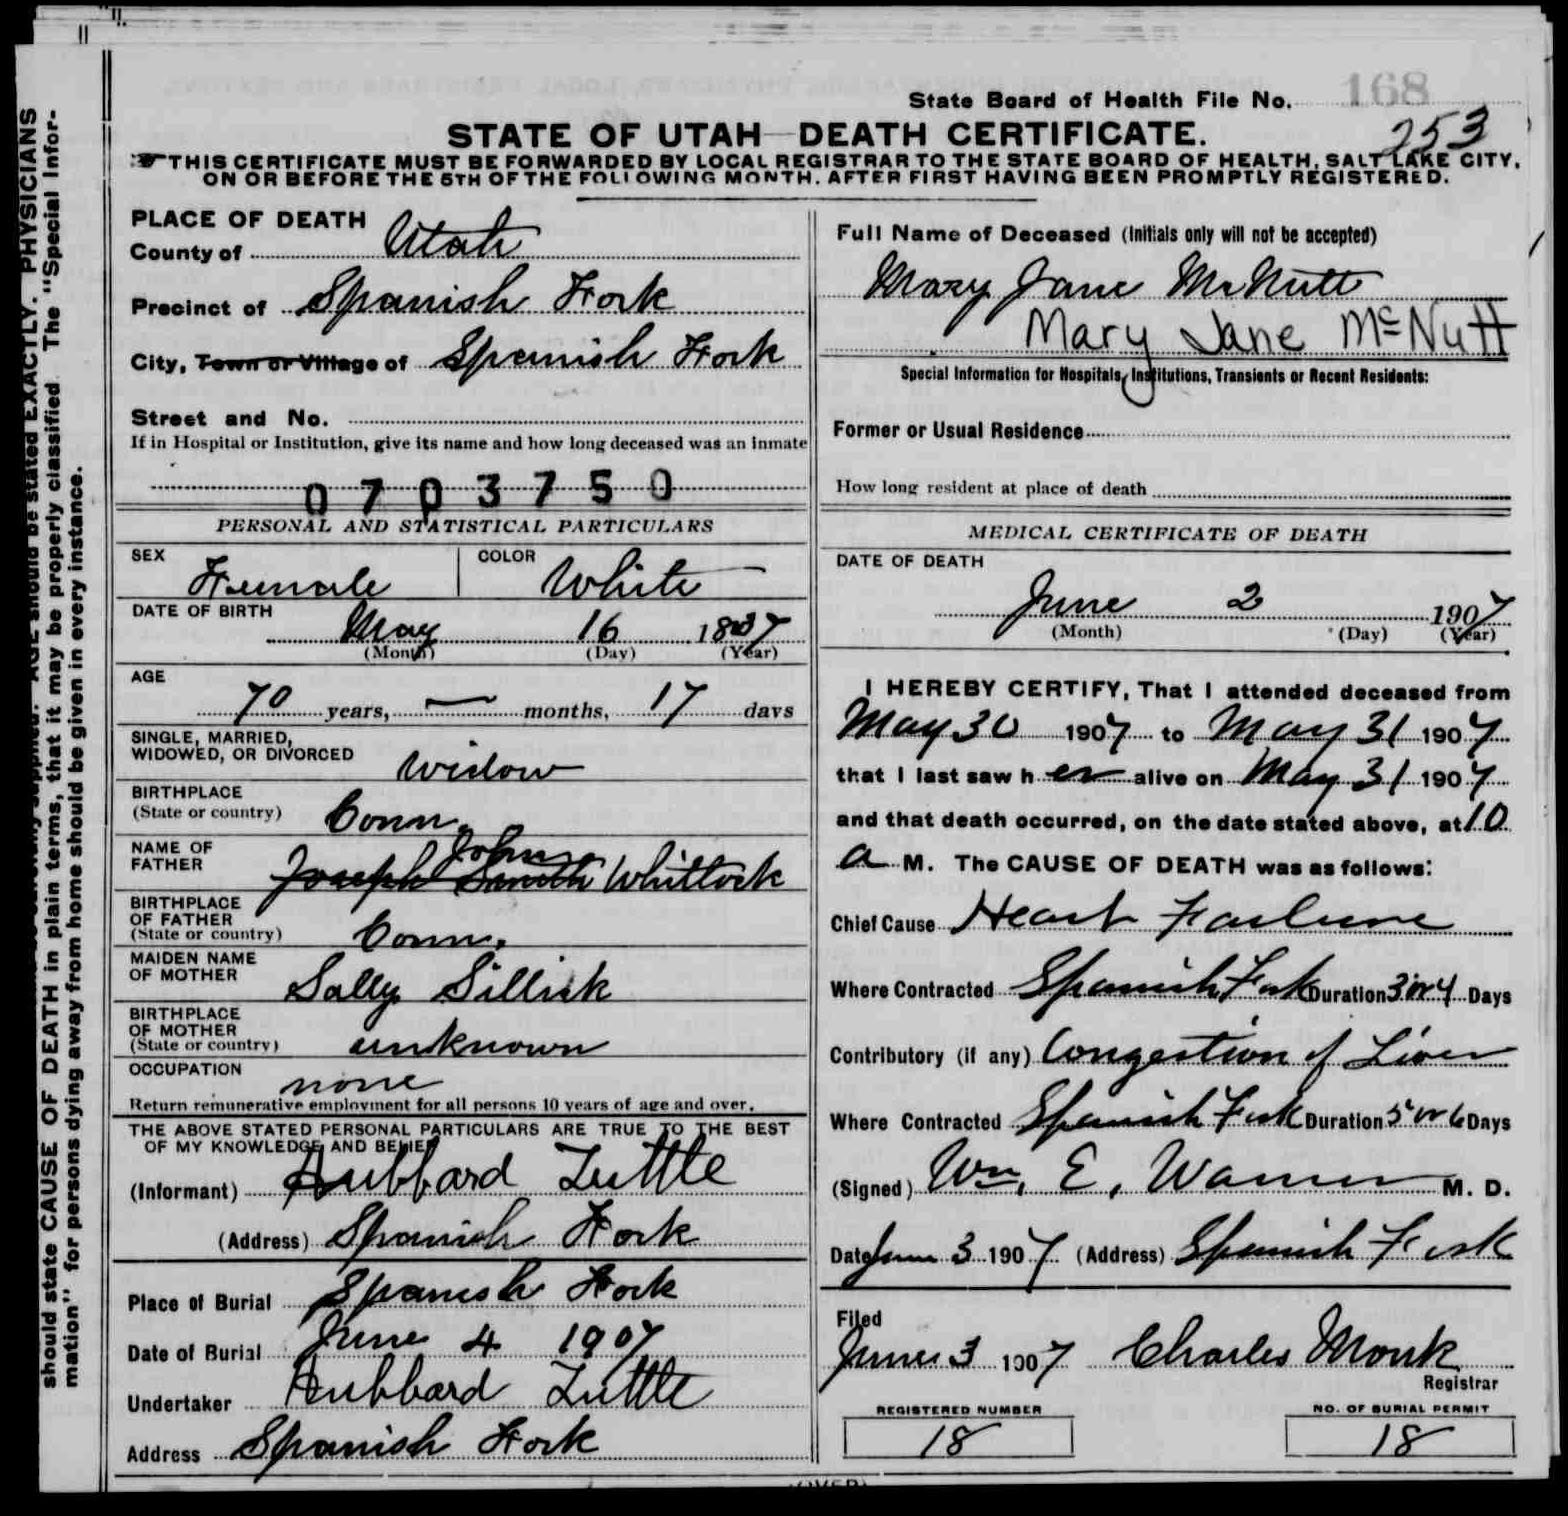 168
State Board of Health File No.
253
STATE OF UTAH—DEATH CERTIFICATE.
THIS CERTIFICATE MUST BE FORWARDED BY LOCAL REGISTRAR TO THE STATE BOARD OF HEALTH, SALT LAKE CITY,
ON OR BEFORE THE 5TH OF THE FOLLOWING MONTH, AFTER FIRST HAVING BEEN PROMPTLY REGISTERED.
PLACE OF DEATH
County of Utah
Precinct of Spanish Fork
City, Town or Village of Spanish Fork
Street and No.
If in Hospital or Institution, give its name and how long deceased was an inmate
0703750
PERSONAL AND STATISTICAL PARTICULARS
SEX Female COLOR White
DATE OF BIRTH
May 16 1837
(Month) (Day) (Year)
AGE
70 years, — months, 17 days
SINGLE, MARRIED,
WIDOWED, OR DIVORCED widow
BIRTHPLACE
(State or country) Conn.
NAME OF
FATHER Joseph Smith John Whitlock
BIRTHPLACE
OF FATHER
(State or country) Conn.
MAIDEN NAME
OF MOTHER Sally Sillick
BIRTHPLACE
OF MOTHER
(State or country) unknown
OCCUPATION none
Return remunerative employment for all persons 10 years of age and over.
THE ABOVE STATED PERSONAL PARTICULARS ARE TRUE TO THE BEST
OF MY KNOWLEDGE AND BELIEF
(Informant) Hubbard Tuttle
(Address) Spanish Fork
Place of Burial Spanish Fork
Date of Burial June 4 1907
Undertaker Hubbard Tuttle
Address Spanish Fork
Full Name of Deceased (Initials only will not be accepted)
Mary Jane McNutt
Mary Jane McNutt
Special Information for Hospitals, Institutions, Transients or Recent Residents:
Former or Usual Residence
How long resident at place of death
MEDICAL CERTIFICATE OF DEATH
DATE OF DEATH
June 2 1907
(Month) (Day) (Year)
I HEREBY CERTIFY, That I attended deceased from
May 30 1907 to May 31 1907
that I last saw her alive on May 31 1907
and that death occurred, on the date stated above, at 10
a M. The CAUSE OF DEATH was as follows:
Chief Cause Heart Failure
Where Contracted Spanish Fork Duration 3 or 4 Days
Contributory (if any) Congestion of Liver
Where Contracted Spanish Fork Duration 5 or 6 Days
(Signed) Wm. E. Warner M. D.
Date June 3 1907 (Address) Spanish Fork
Filed
June 3 1907 Charles Monk
Registrar
REGISTERED NUMBER
18
NO. OF BURIAL PERMIT
18
(OVER)
PHYSICIANS
should state CAUSE OF DEATH in plain terms, that it may be properly classified. The "Special Infor-
mation" for persons dying away from home should be given in every instance.